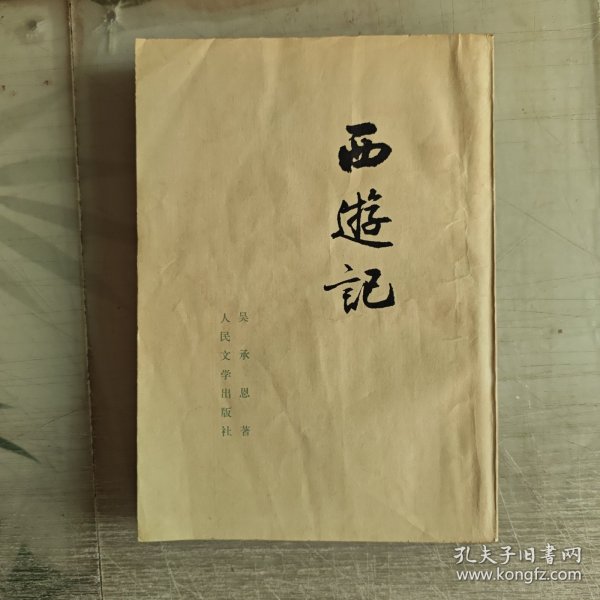 西遊記
吴承恩著
人民文学出版社
孔夫子旧书网
www.kongfz.com